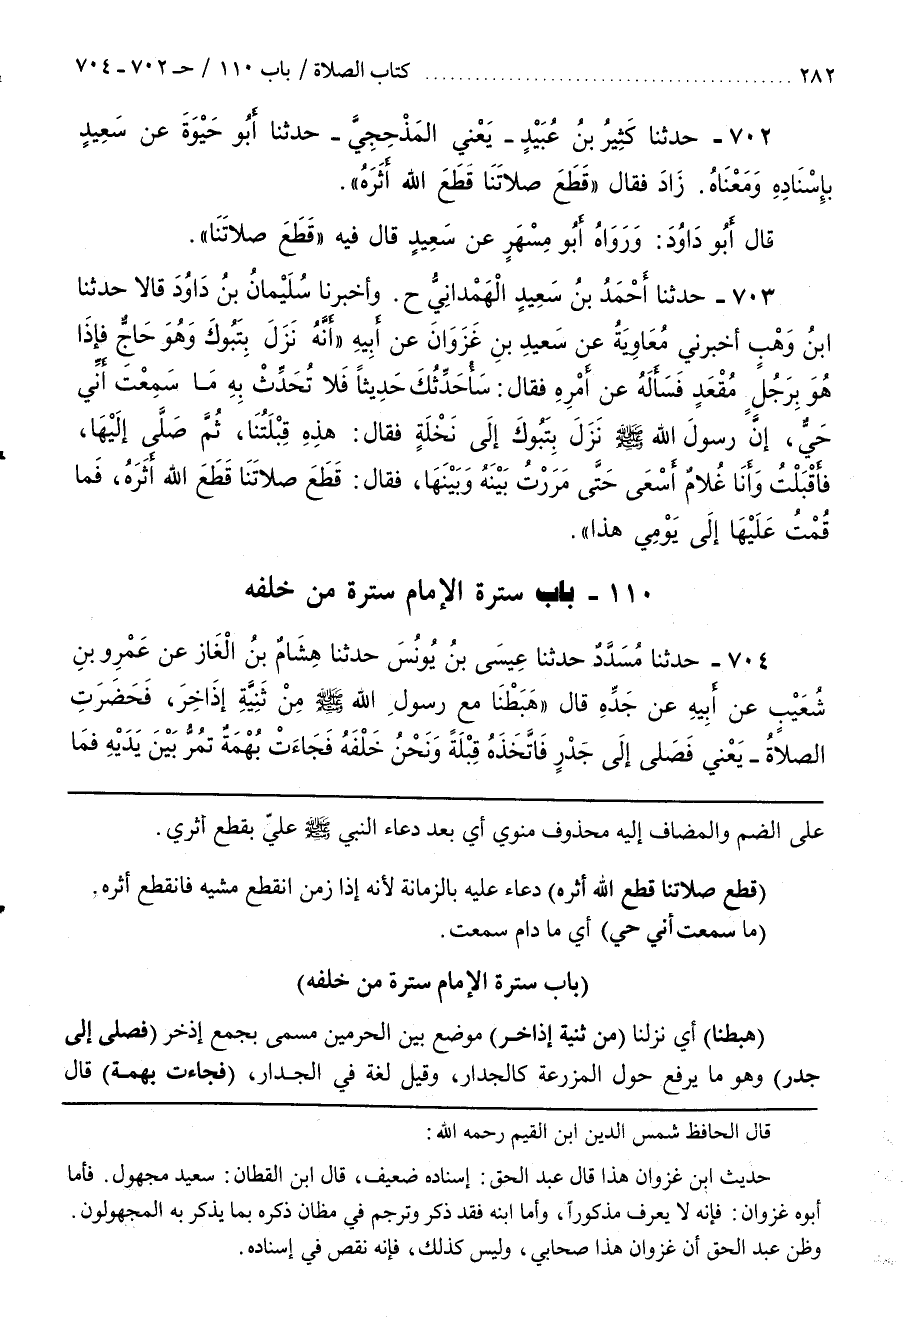 ٢٨٢ ........................................ كتاب الصلاة / باب ١١٠ / حـ ٧٠٢ - ٧٠٤
٧٠٢ - حدثنا كَثِيرُ بنُ عُبَيْدٍ - يَعْني المَذْحِجِيَّ - حدثنا أَبُو حَيْوَةَ عن سَعِيدٍ
بإِسْنَادِهِ وَمَعْنَاهُ. زَادَ فقال «قَطَعَ صلاتَنَا قَطَعَ الله أَثَرَهُ».
قال أَبُو دَاوُدَ: وَرَوَاهُ أَبُو مِسْهَرٍ عن سَعِيدٍ قال فيه «قَطَعَ صلاتَنَا».
٧٠٣ - حدثنا أَحْمَدُ بنُ سَعِيدٍ الْهَمْدانِيُّ ح. وأخبرنا سُلَيْمانُ بنُ دَاوُدَ قالا حدثنا
ابنُ وَهْبٍ أخبرني مُعَاوِيَةُ عن سَعِيدِ بنِ غَزَوَانَ عن أبِيهِ «أَنَّهُ نَزَلَ بِتَبُوكَ وَهُوَ حَاجٌّ فإذَا
هُوَ بِرَجُلٍ مُقْعَدٍ فَسَأَلَهُ عن أَمْرِهِ فقال: سَأُحَدِّثُكَ حَدِيثاً فَلا تُحَدِّثْ بِهِ مَا سَمِعْتَ أنِّي
حَيٌّ، إنَّ رسولَ الله ﷺ نَزَلَ بِتَبُوكَ إلَى نَخْلَةٍ فقال: هذِهِ قِبْلَتُنَا، ثُمَّ صَلَّى إلَيْهَا،
فأَقْبَلْتُ وَأَنَا غُلامٌ أَسْعَى حَتَّى مَرَرْتُ بَيْنَهُ وَبَيْنَهَا، فقال: قَطَعَ صلاتَنَا قَطَعَ الله أَثَرَهُ، فَما
قُمْتُ عَلَيْهَا إلَى يَوْمِي هذا».
١١٠ - باب سترة الإمام سترة من خلفه
٧٠٤ - حدثنا مُسَدَّدٌ حدثنا عِيسَى بنُ يُونُسَ حدثنا هِشَامُ بنُ الْغَازِ عن عَمْرِو بنِ
شُعَيْبٍ عن أبِيهِ عن جَدِّهِ قال «هَبَطْنَا مع رسولِ الله ﷺ مِنْ ثَنِيَّةِ إذَاخِرَ، فَحَضَرَتِ
الصلاةُ - يَعْني فَصَلى إلَى جَدْرٍ فَاتَّخَذَهُ قِبْلَةً وَنَحْنُ خَلْفَهُ فَجَاءَتْ بُهْمَةٌ تمُرُّ بَيْنَ يَدَيْهِ فمَا
على الضم والمضاف إليه محذوف منوي أي بعد دعاء النبي ﷺ عليّ بقطع أثري.
(قطع صلاتنا قطع الله أثره) دعاء عليه بالزمانة لأنه إذا زمن انقطع مشيه فانقطع أثره.
(ما سمعت أني حي) أي ما دام سمعت.
(باب سترة الإمام سترة من خلفه)
(هبطنا) أي نزلنا (من ثنية إذاخر) موضع بين الحرمين مسمى بجمع إذخر (فصلى إلى
جدر) وهو ما يرفع حول المزرعة كالجدار، وقيل لغة في الجدار، (فجاءت بهمة) قال
قال الحافظ شمس الدين ابن القيم رحمه الله:
حديث ابن غزوان هذا قال عبد الحق: إسناده ضعيف، قال ابن القطان: سعيد مجهول. فأما
أبوه غزوان: فإنه لا يعرف مذكوراً، وأما ابنه فقد ذكر وترجم في مظان ذكره بما يذكر به المجهولون.
وظن عبد الحق أن غزوان هذا صحابي، وليس كذلك، فإنه نقص في إسناده.